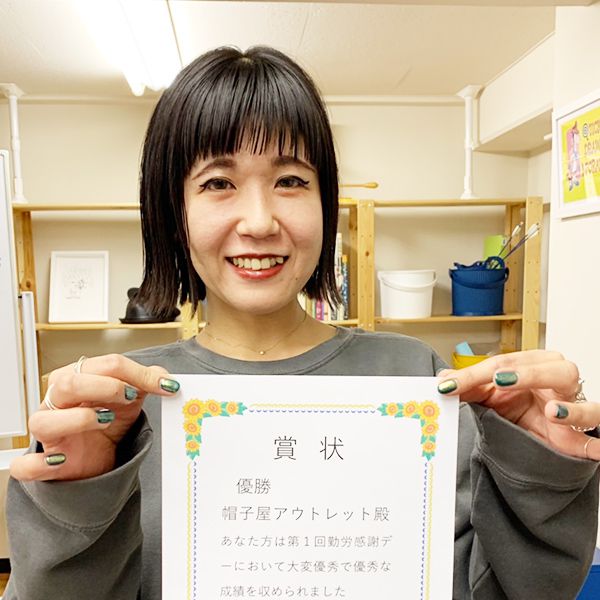 賞 状
優勝
帽子屋アウトレット殿
あなた方は第１回勤労感謝デ
ーにおいて大変優秀で優秀な
成績を収められました